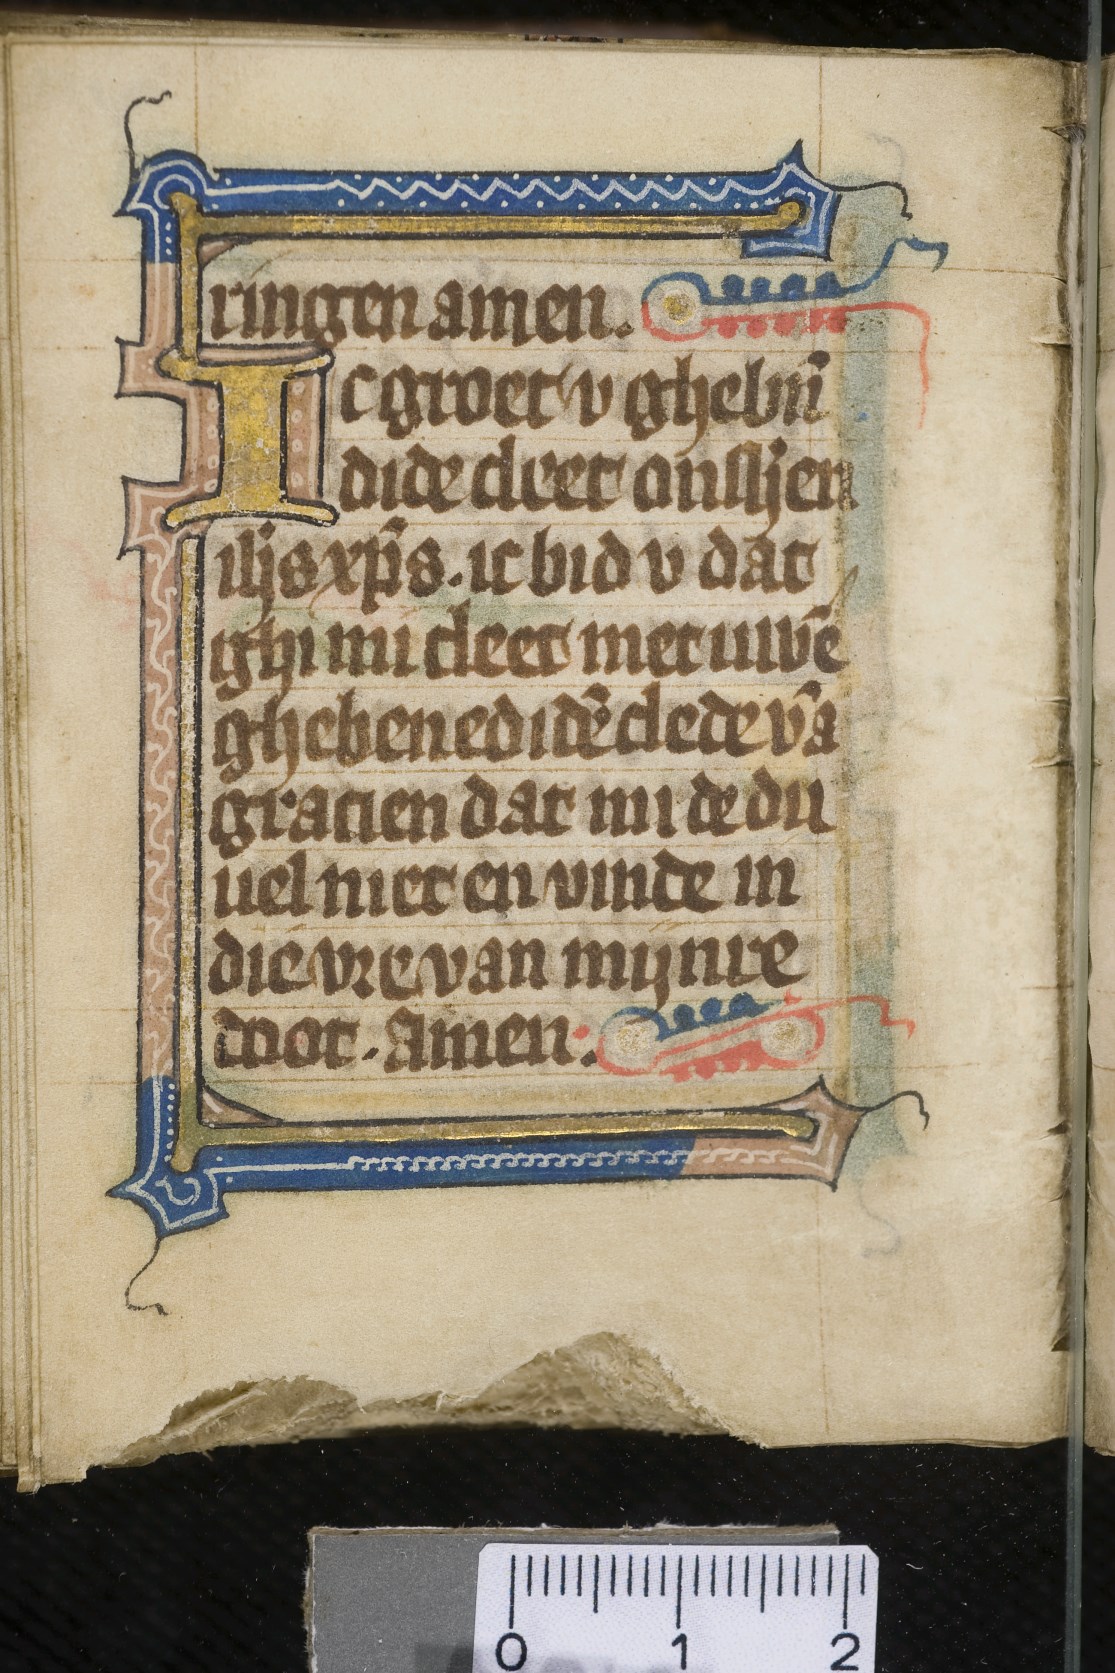 ringen amen.
Ic groet v ghebn̄
didē cleet ons hren
ihs xp̄s. ic bid v dat
ghi mi cleet met uwē
ghebenedidē clede vā
gracien dat mi de du
uel niet en vinde in
die vre van mijnre
doot. Amen.
0 1 2